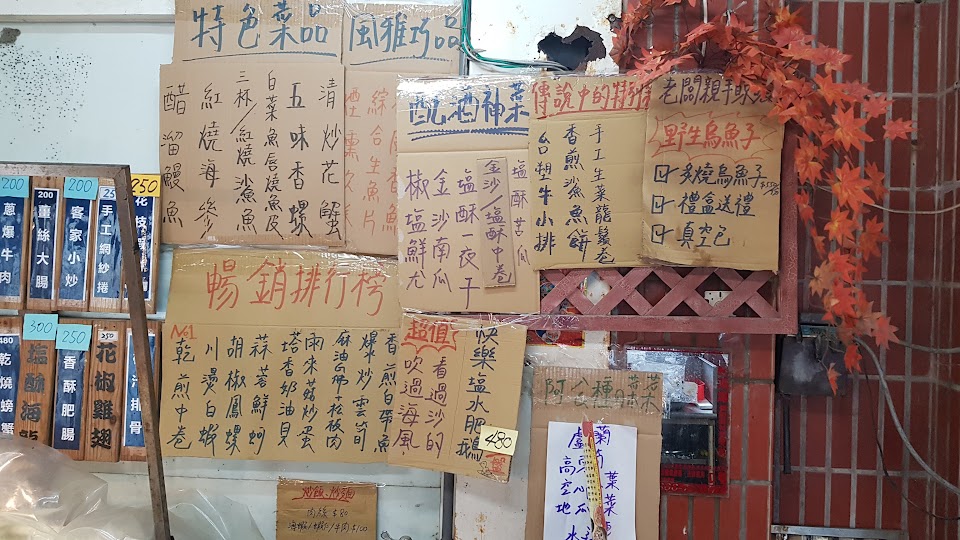 特色菜品
清炒花蟹
五味香螺
白菜魚唇燒魚皮
三杯/紅燒沙魚
紅燒海參
醋溜鰻魚
風雅巧品
綜合生魚片
酒神菜
塩酥苦瓜
金沙/塩酥中卷
塩酥一夜干
金沙南瓜
椒塩鮮尤
傳說中的
手工生菜龍鬚卷
香煎魚魚餅
台塑牛小排
老闆親手
野生烏魚子
烏魚子
禮盒送禮
真空包
200
蔥爆牛肉
200
薑絲大腸
200
客家小炒
手工網紗捲
250
花枝
暢銷排行榜
№1
乾煎中卷
川燙白蝦
胡椒鳳螺
蒜蓉鮮蚵
塔香奶油貝
雨來菇炒蛋
爆炒雲筍
香煎白帶魚
超值
快樂塩水肥鵝
看過沙的
吹過海風
480
480
乾燒螃蟹
300
塩酥
250
香酥肥腸
250
花椒雞翅
排骨
阿公種ㄟ菜
高
地瓜葉
炒飯.炒麵
肉絲$80
牛肉$100